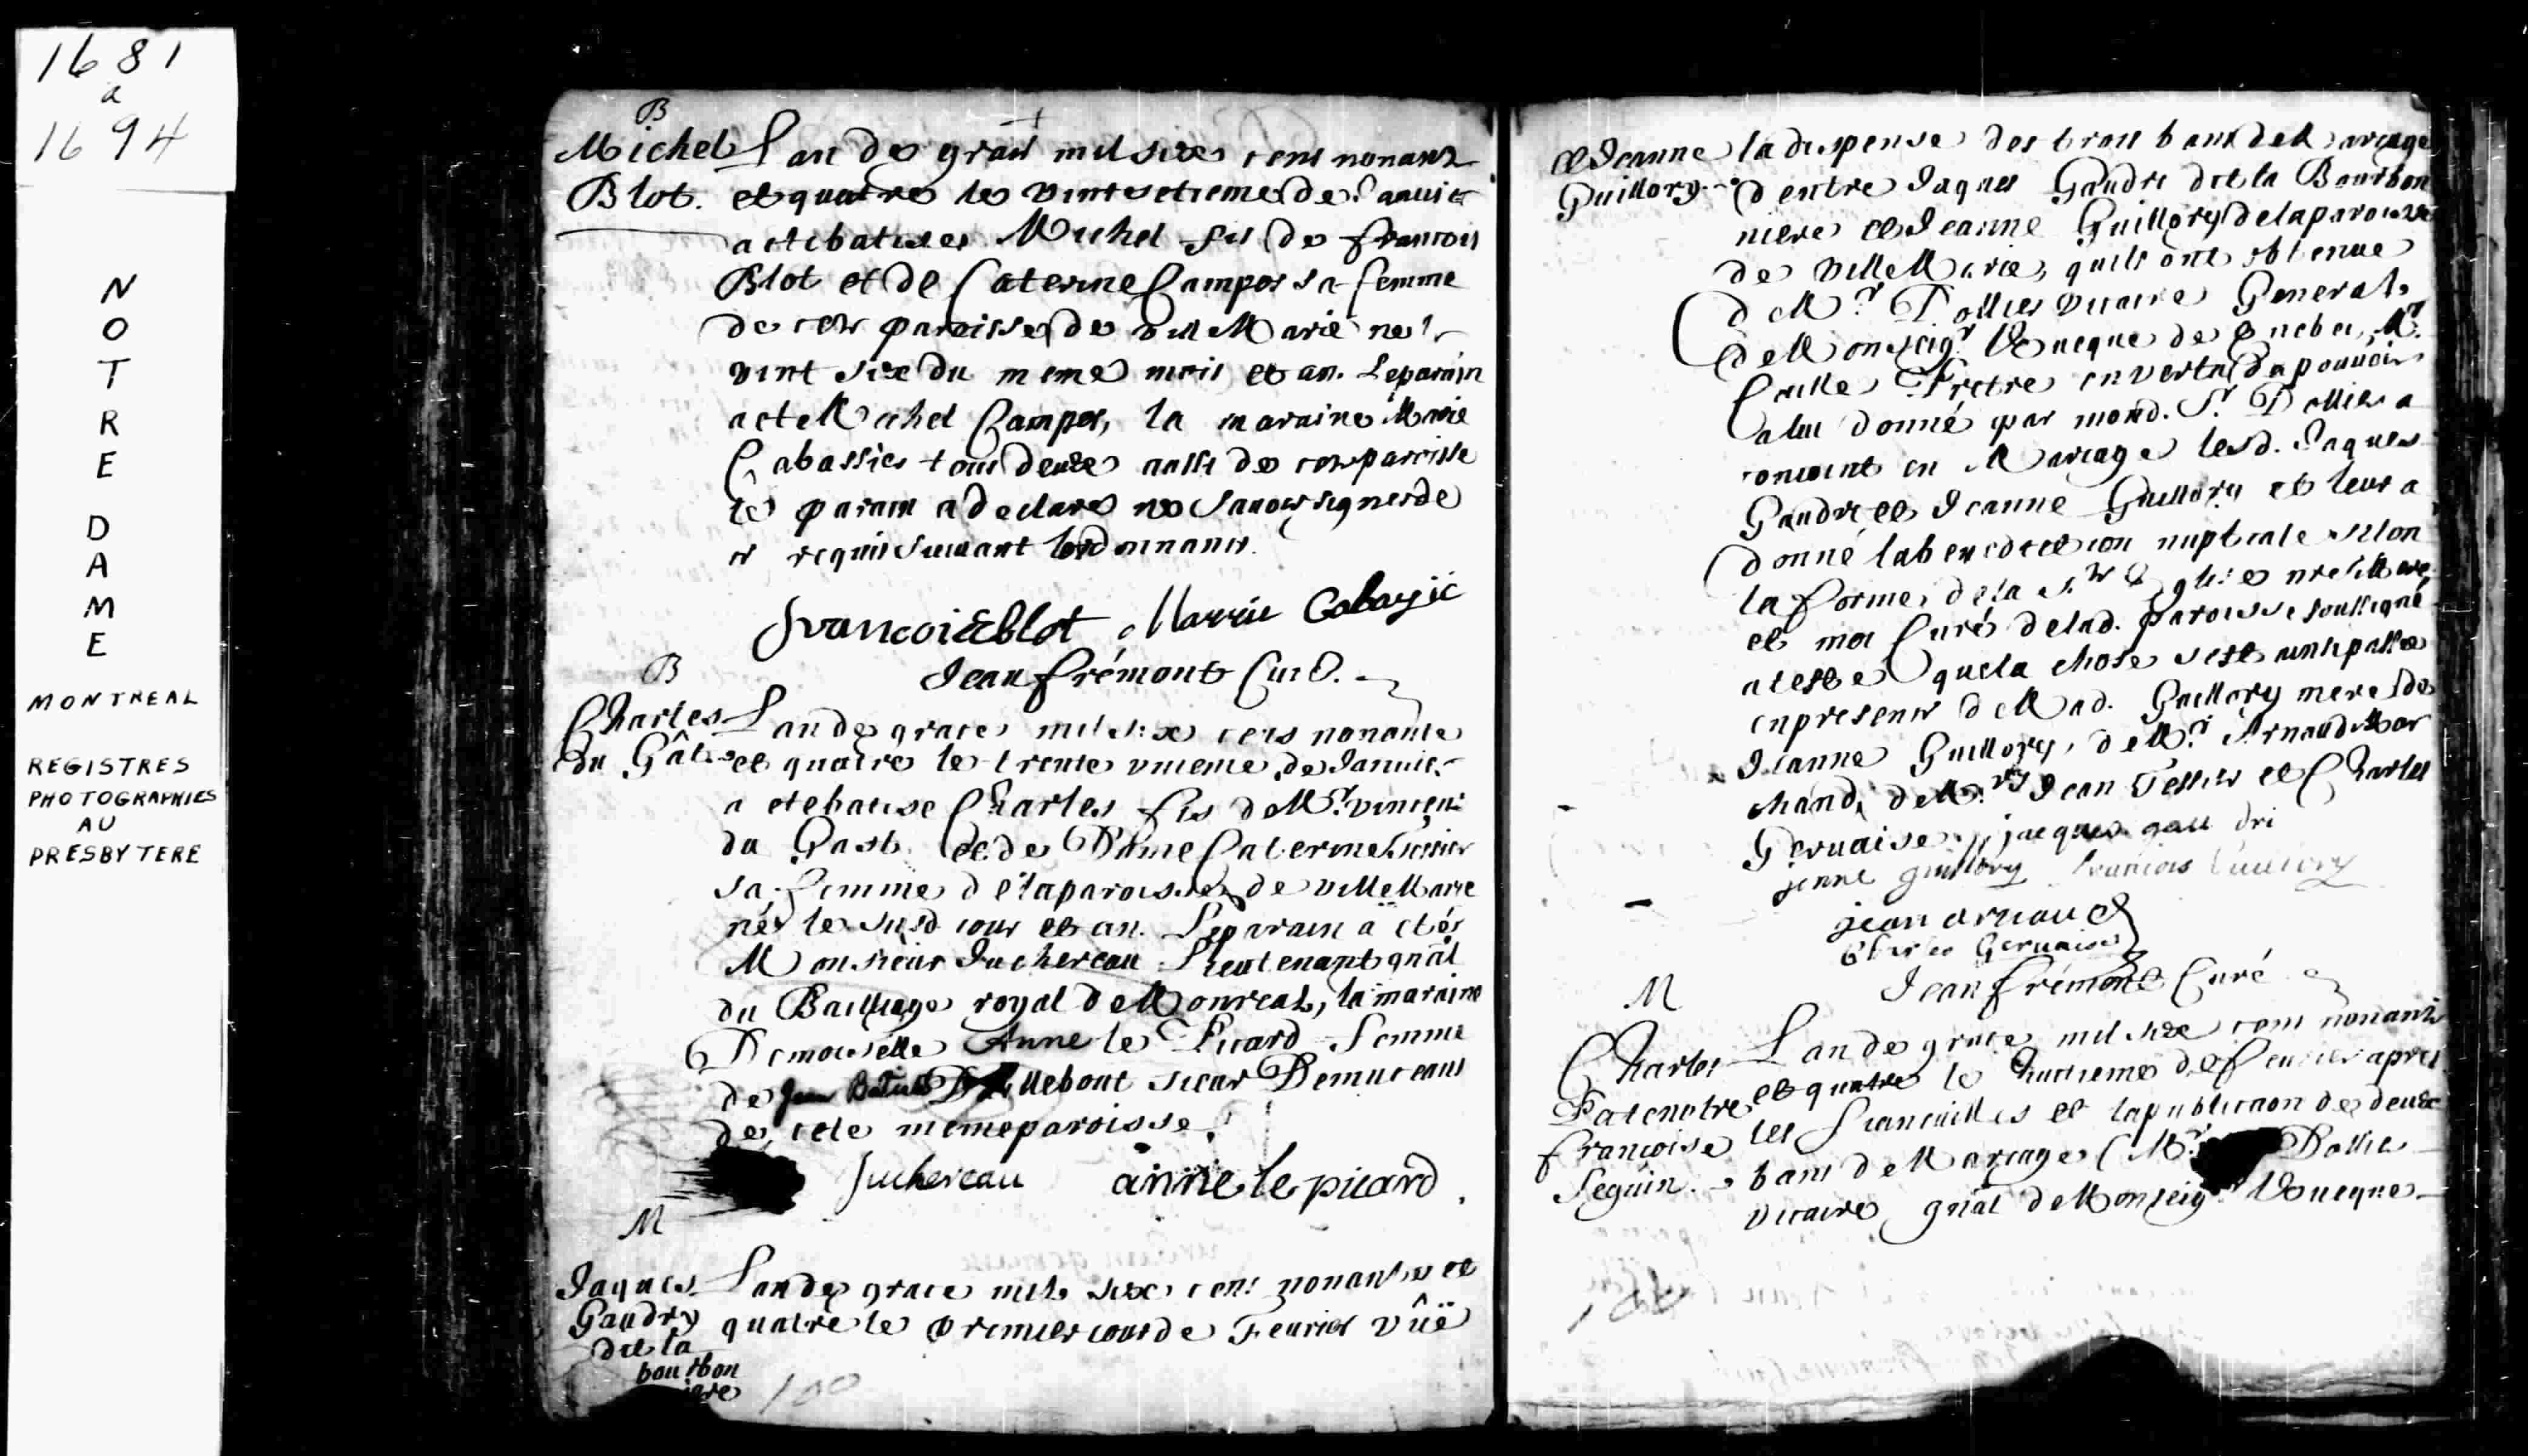 1681
a
1694
N
O
T
R
E
D
A
M
E
MONTREAL
REGISTRES
PHOTOGRAPHIES
AU
PRESBYTERE
B
Michel
Blot.
L'an de grace mil six cens nonante
et quatre le vint setieme de Janvier
a eté batisé Michel fis de francois
Blot et de Caterine Campos sa femme
de cete paroisse de ville Marie né le
vint six du meme mois et an. Le parain
a eté Michel Campos, la maraine Marie
Cabassier tous deux aussi de cete paroisse
le parain a declaré ne savoir signer de
ce requis suivant l'ordonnance.
francois blot Marrie Cabasié
Jean frémont Curé.
B
Charles
du Gâts
L'an de grace mil six cens nonante
et quatre le trente unieme de Janvier
a eté batisé Charles fis de Mr. vincent
du Gast et de Dame Caterine
sa femme de la paroisse de ville Marie
né le susd. jour et an. Le parain a eté
Monsieur Juchereau Lieutenant gnâl
du Bailliage royal de Monreal, la maraine
Demoiselle Anne le Picard femme
de Jean Batiste Dillebout sieur Demuceaus
de cete meme paroisse.
Juchereau anne le picard
M
Jaques
Gaudry
dit la
bourbon
niere
L'an de grace mil six cens nonante et
quatre le premier jour de Fevrier vûë
100
et Jeanne
Guillory.
la dispense des trois bans de Mariage
d'entre Jaques Gaudri dit la Bourbon
niere et Jeanne Guillory de la paroisse
de ville Marie, quils ont obtenue
de Mr. Dollier vicaire General
de Monseigr. L'Eveque de Quebec, Mr.
Caille Pretre en vertu du pouvoir
a lui donné par mond. Sr. Dollier a
conjoint en Mariage lesd. Jaques
Gaudri et Jeanne Guillory et leur a
donné la benediction nuptiale selon
la forme de la Ste Eglise
et moi Curé de lad. paroisse soussigné
ateste que la chose s'est ainsi passée
en presence de Mad. Guillory mere de
Jeanne Guillory, de Mr. Arnaud Mar
chand, de Mrs. Jean Tessier et Charles
Gervaise. jacques gau dri
jenne guillory francois Guillory
jean arnaud
Charles Gervaise
Jean frémont Curé
M
Charles
Patenotre
francoise
Seguin.
L'an de grace mil six cens nonante
et quatre le huitieme de fevrier apres
les fiancailles et la publication de deux
bans de Mariage (Mr. Dollier
vicaire gnâl de Monseigr. L'Eveque